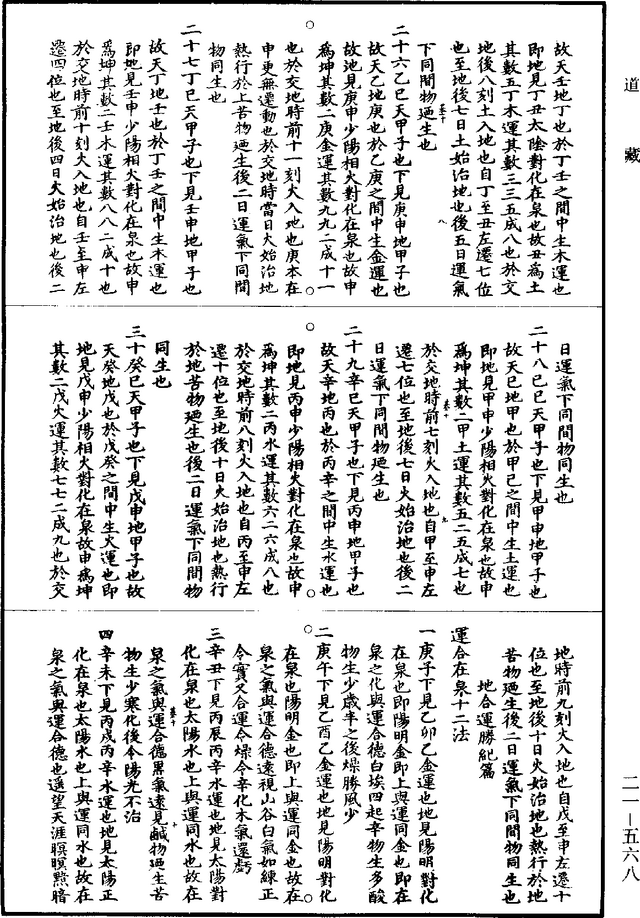 道藏
故天壬地丁也於丁壬之間中生木運也
即地見丁丑太陰對化在泉也故丑為土
其數五丁木運其數三三五成八也於交
地後八刻土入地也自丁至丑左遷七位
也至地後七日土始治地也後五日運氣
下同間物廼生也
二十六乙巳天甲子也下見庚申地甲子也
故天乙地庚也於乙庚之間中生金運也
故地見庚申少陽相火對化在泉也故申
為坤其數二庚金運其數九九二成十一
也於交地時前十一刻火入地也庚本在
申更無遷動也於交地時當日火始治地
熱行於上苦物廼生後二日運氣下同間
物同生也
二十七丁巳天甲子也下見壬申地甲子也
故天丁地壬也於丁壬之間中生木運也
即地見壬申少陽相火對化在泉也故申
為坤其數二壬木運其數八八二成十也
於交地時前十刻火入地也自壬至申左
遷四位也至地後四日火始治地也後二
日運氣下同間物同生也
二十八己巳天甲子也下見甲申地甲子也
故天己地甲也於甲己之間中生土運也
即地見甲申少陽相火對化在泉也故申
為坤其數二甲土運其數五二五成七也
於交地時前七刻火入地也自甲至申左
遷七位也至地後七日火始治地也後二
日運氣下同間物廼生也
二十九辛巳天甲子也下見丙申地甲子也
故天辛地丙也於丙辛之間中生水運也
即地見丙申少陽相火對化在泉也故申
為坤其數二丙水運其數六二六成八也
於交地時前八刻火入地也自丙至申左
遷十位也至地後十日火始治地也熱行
於地苦物廼生也後二日運氣下同間物
同生也
三十癸巳天甲子也下見戊申地甲子也故
天癸地戊也於戊癸之間中生火運也即
地見戊申少陽相火對化在泉故申為坤
其數二戊火運其數七七二成九也於交
地時前九刻火入地也自戊至申左遷十
位也至地後十日火始治地也熱行於地
苦物廼生後二日運氣下同間物同生也
地合運勝紀篇
運合在泉十二法
一庚子下見乙卯乙金運也地見陽明對化
在泉也即陽明金即上與運同金也即在
泉之化與運合德白埃四起辛物生多酸
物生少歲半之後燥勝風少
二庚午下見乙酉乙金運也地見陽明對化
在泉也陽明金也即上與運同金也故在
泉之氣與運合德遠視山谷白氣如練正
令實又合運令燥令辛化木氣還虧
三辛丑下見丙辰丙辛水運也地見太陽對
化在泉也太陽水也上與運同水也故在
泉之氣與運合德黑氣遠見鹹物廼生苦
物生少寒化後令陽光不治
四辛未下見丙戌丙辛水運也地見太陽正
化在泉也太陽水也上與運同水也故在
泉之氣與運合德也遥望天涯暝暝黯暗
二一—五六八